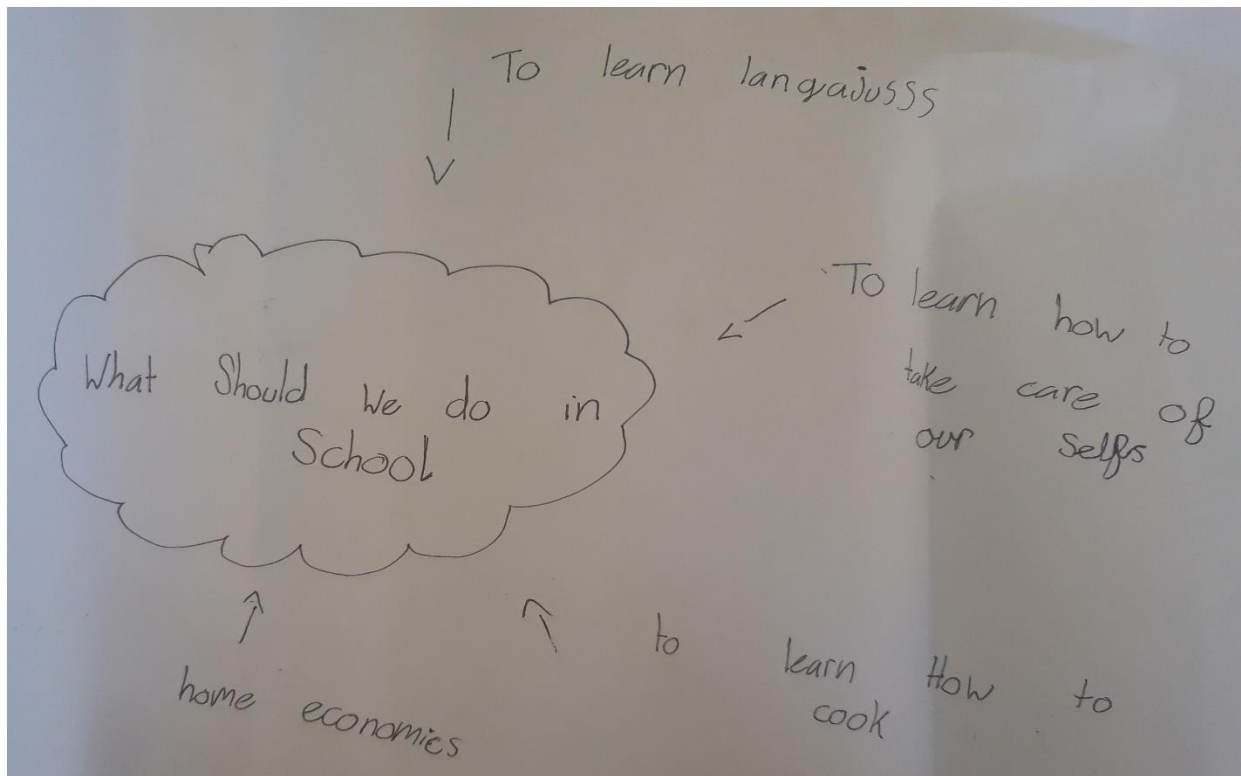 To learn langajusss
What Should We do in
School
To learn how to
take care of
our selfs
home economics
to learn How to
cook